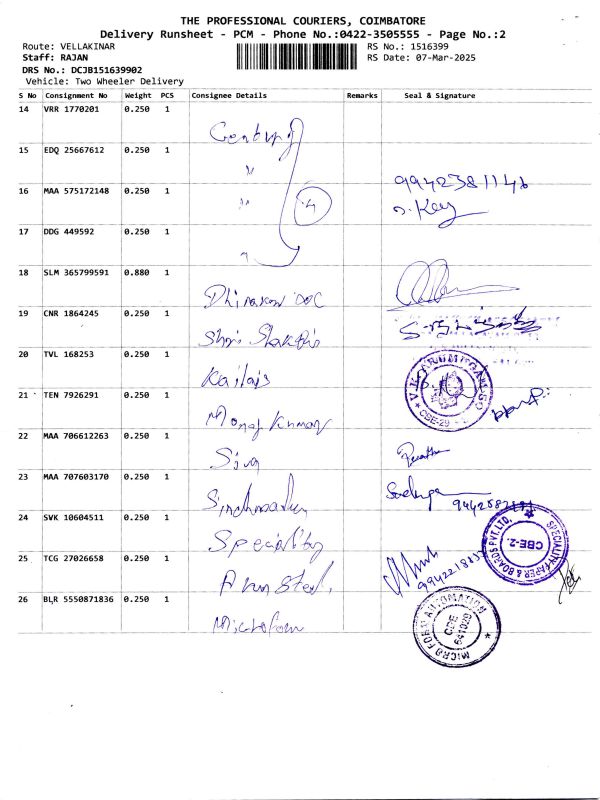 THE PROFESSIONAL COURIERS, COIMBATORE
Delivery Runsheet - PCM - Phone No.:0422-3505555 - Page No.:2
Route: VELLAKINAR RS No.: 1516399
Staff: RAJAN RS Date: 07-Mar-2025
DRS No.: DCJB151639902
Vehicle: Two Wheeler Delivery
S No Consignment No Weight PCS Consignee Details Remarks Seal & Signature
14 VRR 1770201 0.250 1 Century
15 EDQ 25667612 0.250 1 "
16 MAA 575172148 0.250 1 " 4 9942381146
17 DDG 449592 0.250 1 "
18 SLM 365799591 0.880 1 Dhinakaran DOC
19 CNR 1864245 0.250 1 Shri Shakthi
20 TVL 168253 0.250 1 Kailais
21 TEN 7926291 0.250 1 Manoj Kumar
22 MAA 706612263 0.250 1 Siva
23 MAA 707603170 0.250 1
24 SVK 10604511 0.250 1 Speciality SPECIALITY PAPER & BOARDS PVT.LTD. CBE-2
25 TCG 27026658 0.250 1 Arun Steel.
26 BLR 5550871836 0.250 1 Microform MICRO FORM AUTOMATION CBE 641029